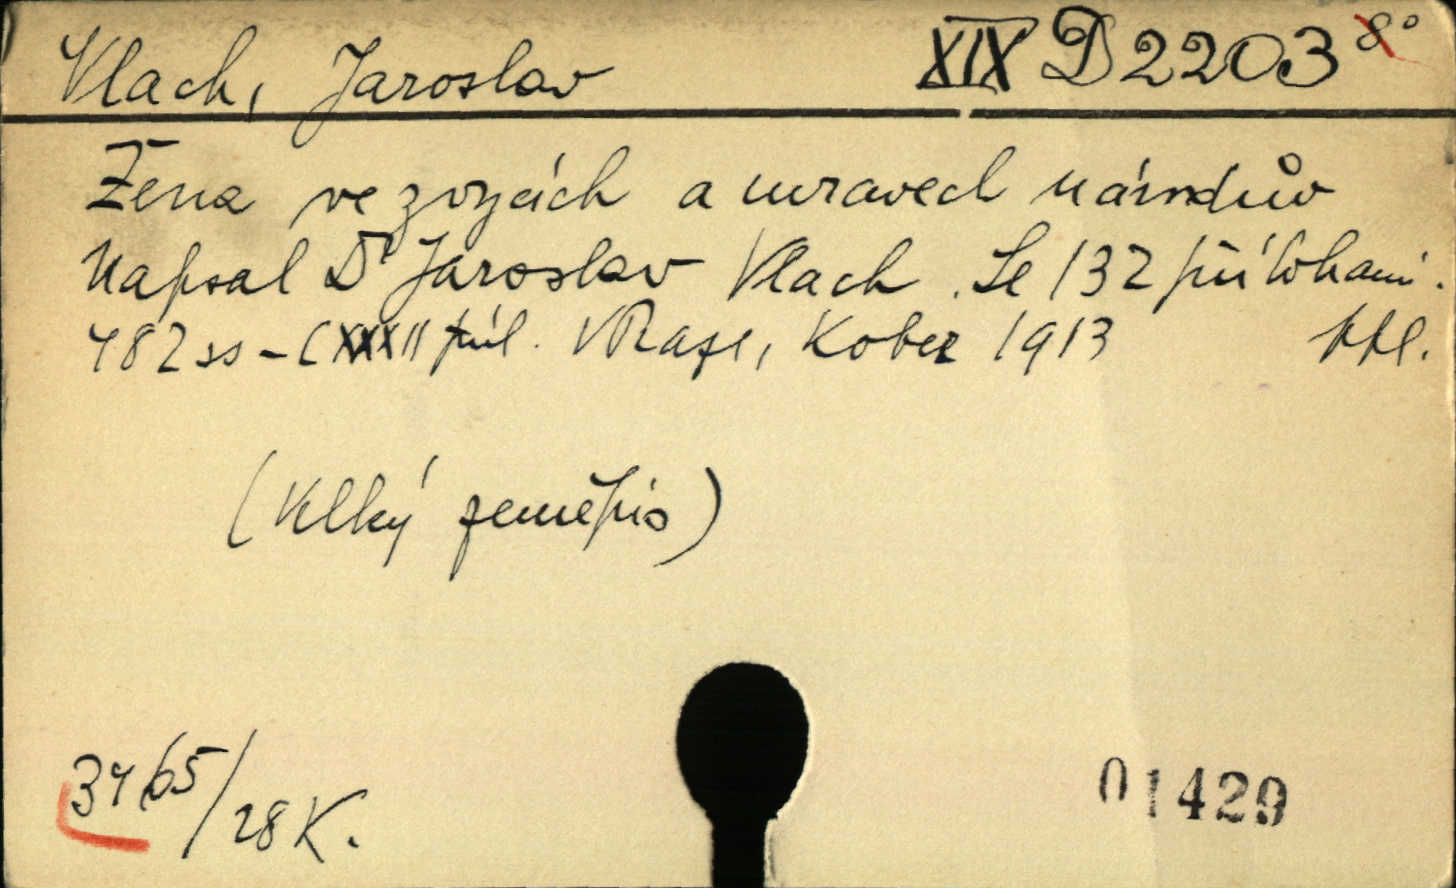 Vlach, Jaroslav XIX D 2203 8°
Žena ve zvycích a mravech národův
Napsal Dr Jaroslav Vlach. Se 132 přílohami.
482 ss - CXXXII příl. V Praze, Kober 1913 ppl.
(Velký zeměpis)
34/65/28 K.
01429